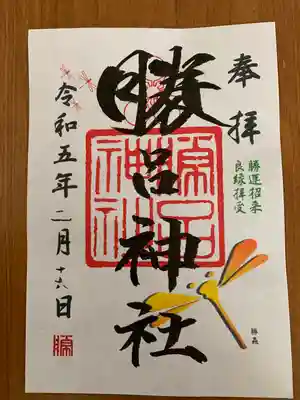 奉拝
勝運招来
良縁拝受
勝呂神社
勝呂
神社
令和五年二月十六日
勝蟲